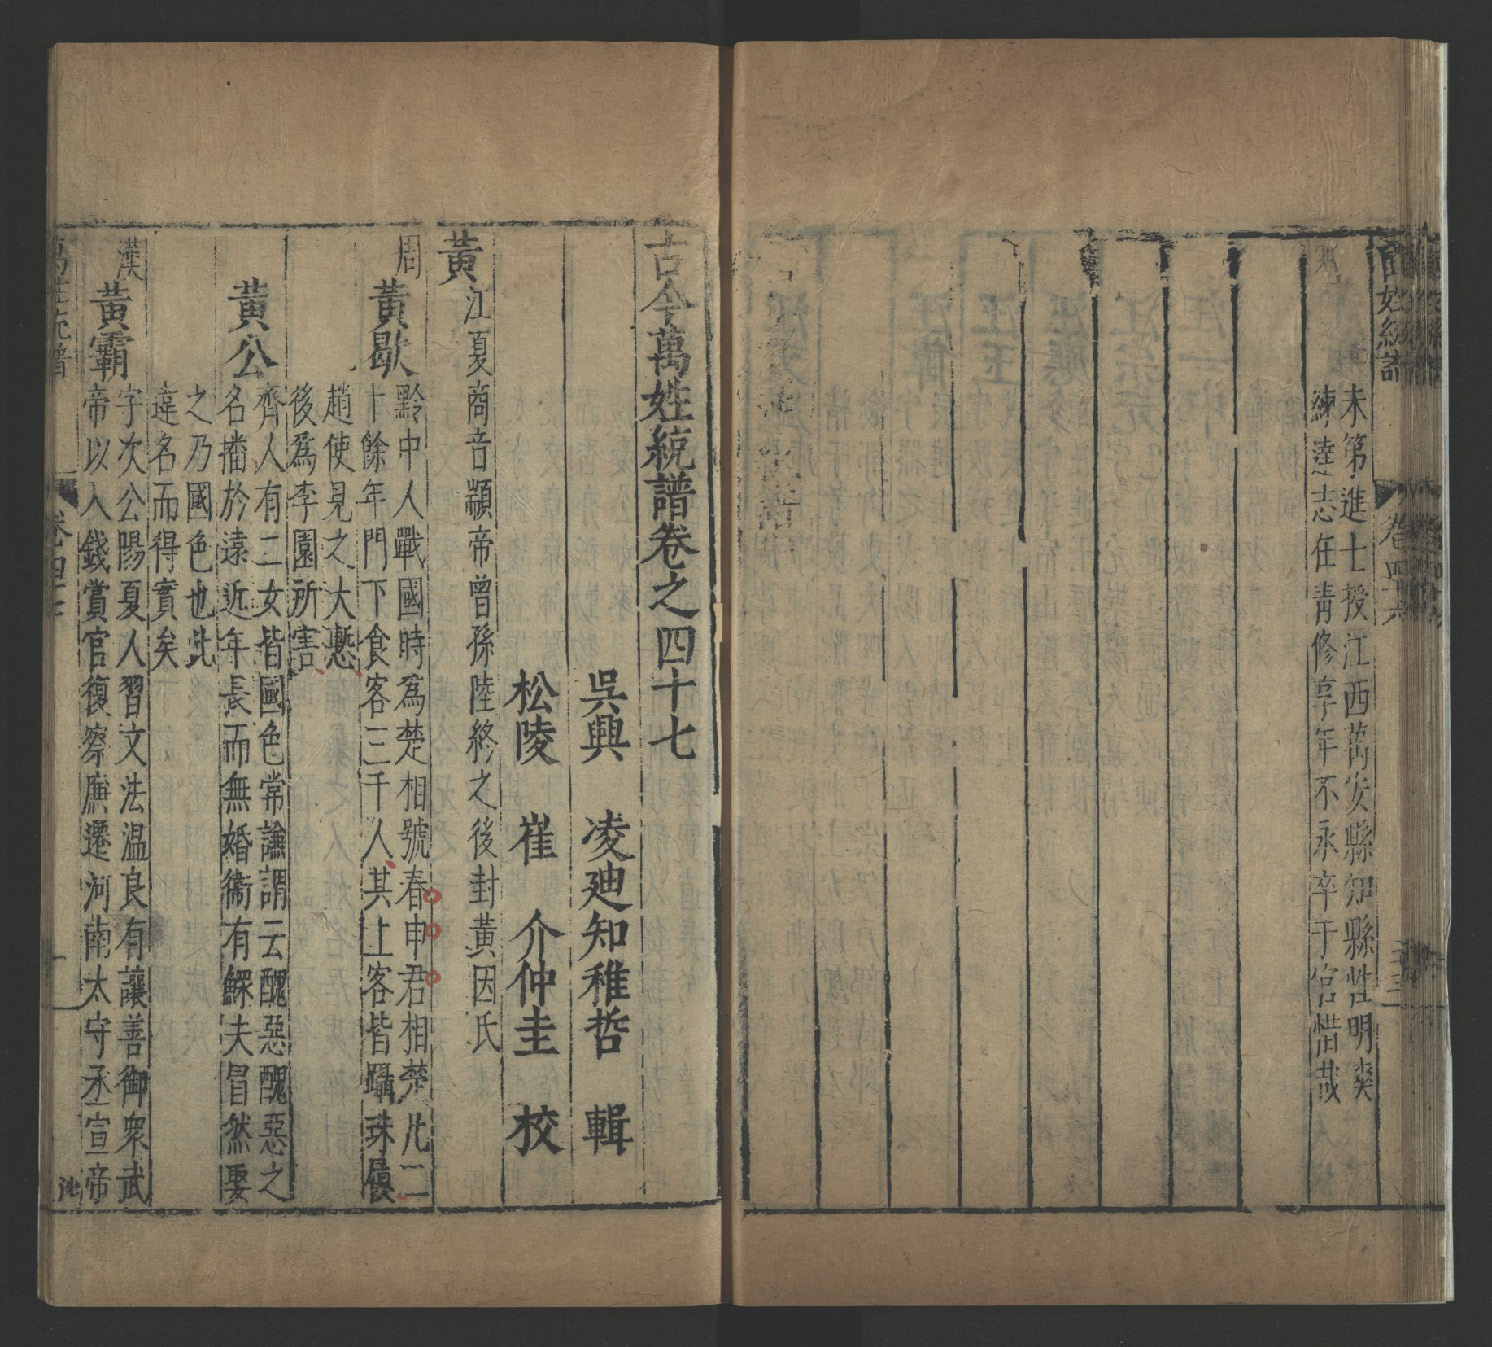 百姓統譜
卷四十六
未第進士授江西萬安縣知縣性明爽
練達志在清修享年不永卒于官惜哉
古今萬姓統譜卷之四十七
吳興 凌迪知稚哲 輯
松陵 崔 介仲圭 校
黃
江夏商音顓帝曾孫陸終之後封黃因氏
周
黃歇
黔中人戰國時為楚相號春申君相楚凡二
十餘年門下食客三千人其上客皆躡珠履
趙使見之大慙
後為李園所害
黃公
齊人有二女皆國色常謙謂云醜惡醜惡之
名播於遠近年長而無婚衞有鰥夫冒然娶
之乃國色也此
違名而得實矣
漢
黃霸
字次公陽夏人習文法温良有讓善御衆武
帝以入錢賞官復察廉遷河南太守丞宣帝
萬姓統譜
卷四十七
一